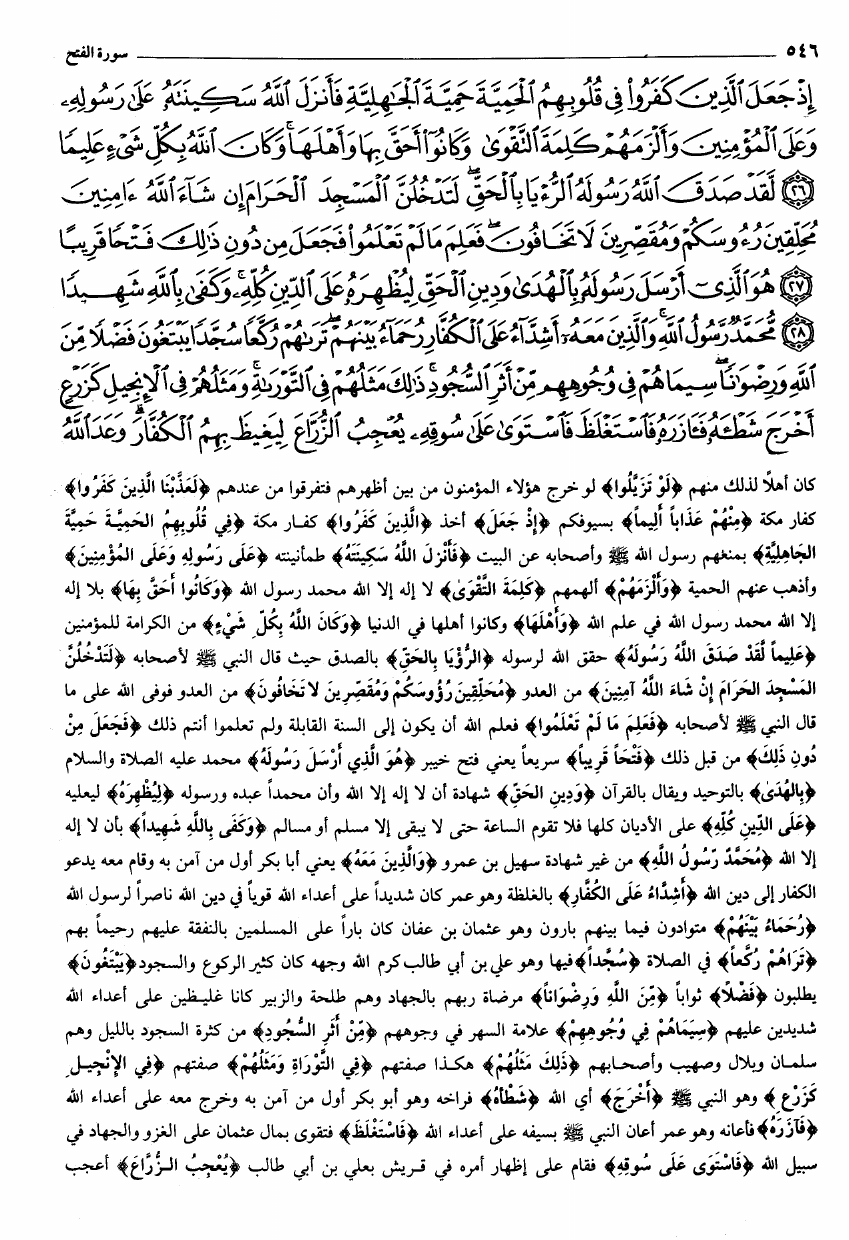 ٥٤٦ سورة الفتح
إِذْ جَعَلَ ٱلَّذِينَ كَفَرُوا۟ فِى قُلُوبِهِمُ ٱلْحَمِيَّةَ حَمِيَّةَ ٱلْجَٰهِلِيَّةِ فَأَنزَلَ ٱللَّهُ سَكِينَتَهُۥ عَلَىٰ رَسُولِهِۦ
وَعَلَى ٱلْمُؤْمِنِينَ وَأَلْزَمَهُمْ كَلِمَةَ ٱلتَّقْوَىٰ وَكَانُوٓا۟ أَحَقَّ بِهَا وَأَهْلَهَا ۚ وَكَانَ ٱللَّهُ بِكُلِّ شَىْءٍ عَلِيمًا
﴿٢٦﴾ لَّقَدْ صَدَقَ ٱللَّهُ رَسُولَهُ ٱلرُّءْيَا بِٱلْحَقِّ ۖ لَتَدْخُلُنَّ ٱلْمَسْجِدَ ٱلْحَرَامَ إِن شَآءَ ٱللَّهُ ءَامِنِينَ
مُحَلِّقِينَ رُءُوسَكُمْ وَمُقَصِّرِينَ لَا تَخَافُونَ ۖ فَعَلِمَ مَا لَمْ تَعْلَمُوا۟ فَجَعَلَ مِن دُونِ ذَٰلِكَ فَتْحًا قَرِيبًا
﴿٢٧﴾ هُوَ ٱلَّذِىٓ أَرْسَلَ رَسُولَهُۥ بِٱلْهُدَىٰ وَدِينِ ٱلْحَقِّ لِيُظْهِرَهُۥ عَلَى ٱلدِّينِ كُلِّهِۦ ۚ وَكَفَىٰ بِٱللَّهِ شَهِيدًا
﴿٢٨﴾ مُّحَمَّدٌ رَّسُولُ ٱللَّهِ ۚ وَٱلَّذِينَ مَعَهُۥٓ أَشِدَّآءُ عَلَى ٱلْكُفَّارِ رُحَمَآءُ بَيْنَهُمْ ۖ تَرَىٰهُمْ رُكَّعًا سُجَّدًا يَبْتَغُونَ فَضْلًا مِّنَ
ٱللَّهِ وَرِضْوَٰنًا ۖ سِيمَاهُمْ فِى وُجُوهِهِم مِّنْ أَثَرِ ٱلسُّجُودِ ۚ ذَٰلِكَ مَثَلُهُمْ فِى ٱلتَّوْرَىٰةِ ۚ وَمَثَلُهُمْ فِى ٱلْإِنجِيلِ كَزَرْعٍ
أَخْرَجَ شَطْـَٔهُۥ فَـَٔازَرَهُۥ فَٱسْتَغْلَظَ فَٱسْتَوَىٰ عَلَىٰ سُوقِهِۦ يُعْجِبُ ٱلزُّرَّاعَ لِيَغِيظَ بِهِمُ ٱلْكُفَّارَ ۗ وَعَدَ ٱللَّهُ
كان أهلاً لذلك منهم ﴿لَوْ تَزَيَّلُوا﴾ لو خرج هؤلاء المؤمنون من بين أظهرهم فتفرقوا من عندهم ﴿لَعَذَّبْنَا الَّذِينَ كَفَرُوا﴾
كفار مكة ﴿مِنْهُمْ عَذَاباً أَلِيماً﴾ بسيوفكم ﴿إِذْ جَعَلَ﴾ أخذ ﴿الَّذِينَ كَفَرُوا﴾ كفـار مكة ﴿فِي قُلُوبِهِمُ الحَمِيَّـةَ حَمِيَّةَ
الجَاهِلِيَّةِ﴾ بمنعهم رسول الله ﷺ وأصحابه عن البيت ﴿فَأَنْزَلَ اللَّهُ سَكِينَتَهُ﴾ طمأنينته ﴿عَلَى رَسُولِهِ وَعَلَى المُؤْمِنِينَ﴾
وأذهب عنهم الحمية ﴿وَأَلْزَمَهُمْ﴾ ألهمهم ﴿كَلِمَةَ التَّقْوَىٰ﴾ لا إله إلا الله محمد رسول الله ﴿وَكَانُوا أَحَقَّ بِهَا﴾ بلا إله
إلا الله محمد رسول الله في علم الله ﴿وَأَهْلَهَا﴾ وكانوا أهلها في الدنيا ﴿وَكَانَ اللَّهُ بِكُلِّ شَيْءٍ﴾ من الكرامة للمؤمنين
﴿عَلِيماً لَقَدْ صَدَقَ اللَّهُ رَسُولَهُ﴾ حقق الله لرسوله ﴿الرُّؤْيَا بِالحَقِّ﴾ بالصدق حيث قال النبي ﷺ لأصحابه ﴿لَتَدْخُلُنَّ
المَسْجِدَ الحَرَامَ إِنْ شَاءَ اللَّهُ آمِنِينَ﴾ من العدو ﴿مُحَلِّقِينَ رُؤُوسَكُمْ وَمُقَصِّرِينَ لا تَخَافُونَ﴾ من العدو فوفى الله على ما
قال النبي ﷺ لأصحابه ﴿فَعَلِمَ مَا لَمْ تَعْلَمُوا﴾ فعلم الله أن يكون إلى السنة القابلة ولم تعلموا أنتم ذلك ﴿فَجَعَلَ مِنْ
دُونِ ذَلِكَ﴾ من قبل ذلك ﴿فَتْحَاً قَرِيباً﴾ سريعاً يعني فتح خيبر ﴿هُوَ الَّذِي أَرْسَلَ رَسُولَهُ﴾ محمد عليه الصلاة والسلام
﴿بِالهُدَىٰ﴾ بالتوحيد ويقال بالقرآن ﴿وَدِينِ الحَقِّ﴾ شهادة أن لا إله إلا الله وأن محمداً عبده ورسوله ﴿لِيُظْهِرَهُ﴾ ليعليه
﴿عَلَى الدِّينِ كُلِّهِ﴾ على الأديان كلها فلا تقوم الساعة حتى لا يبقى إلا مسلم أو مسالم ﴿وَكَفَى بِاللَّهِ شَهِيداً﴾ بأن لا إله
إلا الله ﴿مُحَمَّدٌ رَسُولُ اللَّهِ﴾ من غير شهادة سهيل بن عمرو ﴿وَالَّذِينَ مَعَهُ﴾ يعني أبا بكر أول من آمن به وقام معه يدعو
الكفار إلى دين الله ﴿أَشِدَّاءُ عَلَى الكُفَّارِ﴾ بالغلظة وهو عمر كان شديداً على أعداء الله قوياً في دين الله ناصراً لرسول الله
﴿رُحَمَاءُ بَيْنَهُمْ﴾ متوادون فيما بينهم بارون وهو عثمان بن عفان كان باراً على المسلمين بالنفقة عليهم رحيماً بهم
﴿تَرَاهُمْ رُكَّعاً﴾ في الصلاة ﴿سُجَّداً﴾ فيها وهو علي بن أبي طالب كرم الله وجهه كان كثير الركوع والسجود ﴿يَبْتَغُونَ﴾
يطلبون ﴿فَضْلًا﴾ ثواباً ﴿مِّنَ اللَّهِ وَرِضْوَاناً﴾ مرضاة ربهم بالجهاد وهم طلحة والزبير كانا غليـظين على أعداء الله
شديدين عليهم ﴿سِيَمَاهُمْ فِي وُجُوهِهِمْ﴾ علامة السهر في وجوههم ﴿مِّنْ أَثَرِ السُّجُودِ﴾ من كثرة السجود بالليل وهم
سلمـان وبلال وصهيب وأصحـابهم ﴿ذَلِكَ مَثَلُهُمْ﴾ هكـذا صفتهم ﴿فِي التَّوْرَاةِ وَمَثَلُهُمْ﴾ صفتهم ﴿فِي الإِنْجِيـلِ
كَزَرْعٍ﴾ وهو النبي ﷺ ﴿أَخْرَجَ﴾ أي الله ﴿شَطْأهُ﴾ فراخه وهو أبو بكر أول من آمن به وخرج معه على أعداء الله
﴿فَآزَرَهُ﴾ فأعانه وهو عمر أعان النبي ﷺ بسيفه على أعداء الله ﴿فَاسْتَغْلَظَ﴾ فتقوى بمال عثمان على الغزو والجهاد في
سبيل الله ﴿فَاسْتَوَى عَلَى سُوقِهِ﴾ فقام على إظهار أمره في قـريش بعلي بن أبي طالب ﴿يُعْجِبُ الـزُّرَّاعَ﴾ أعجب